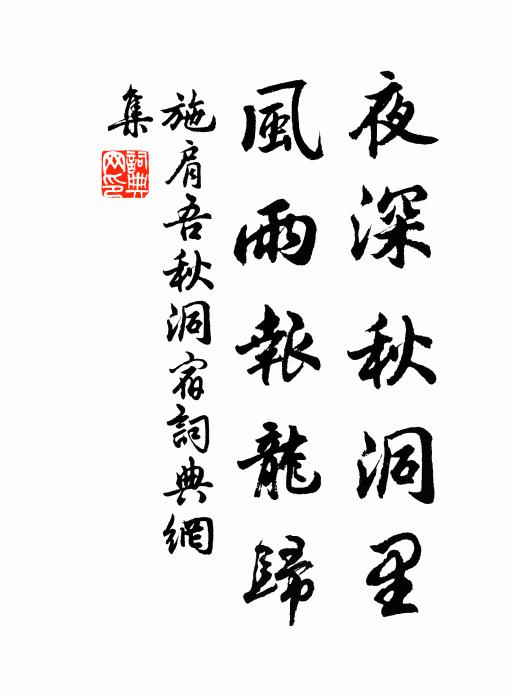 夜深秋洞里
風雨報龍歸
施肩吾秋洞宿詞典網
集
詞典
网印